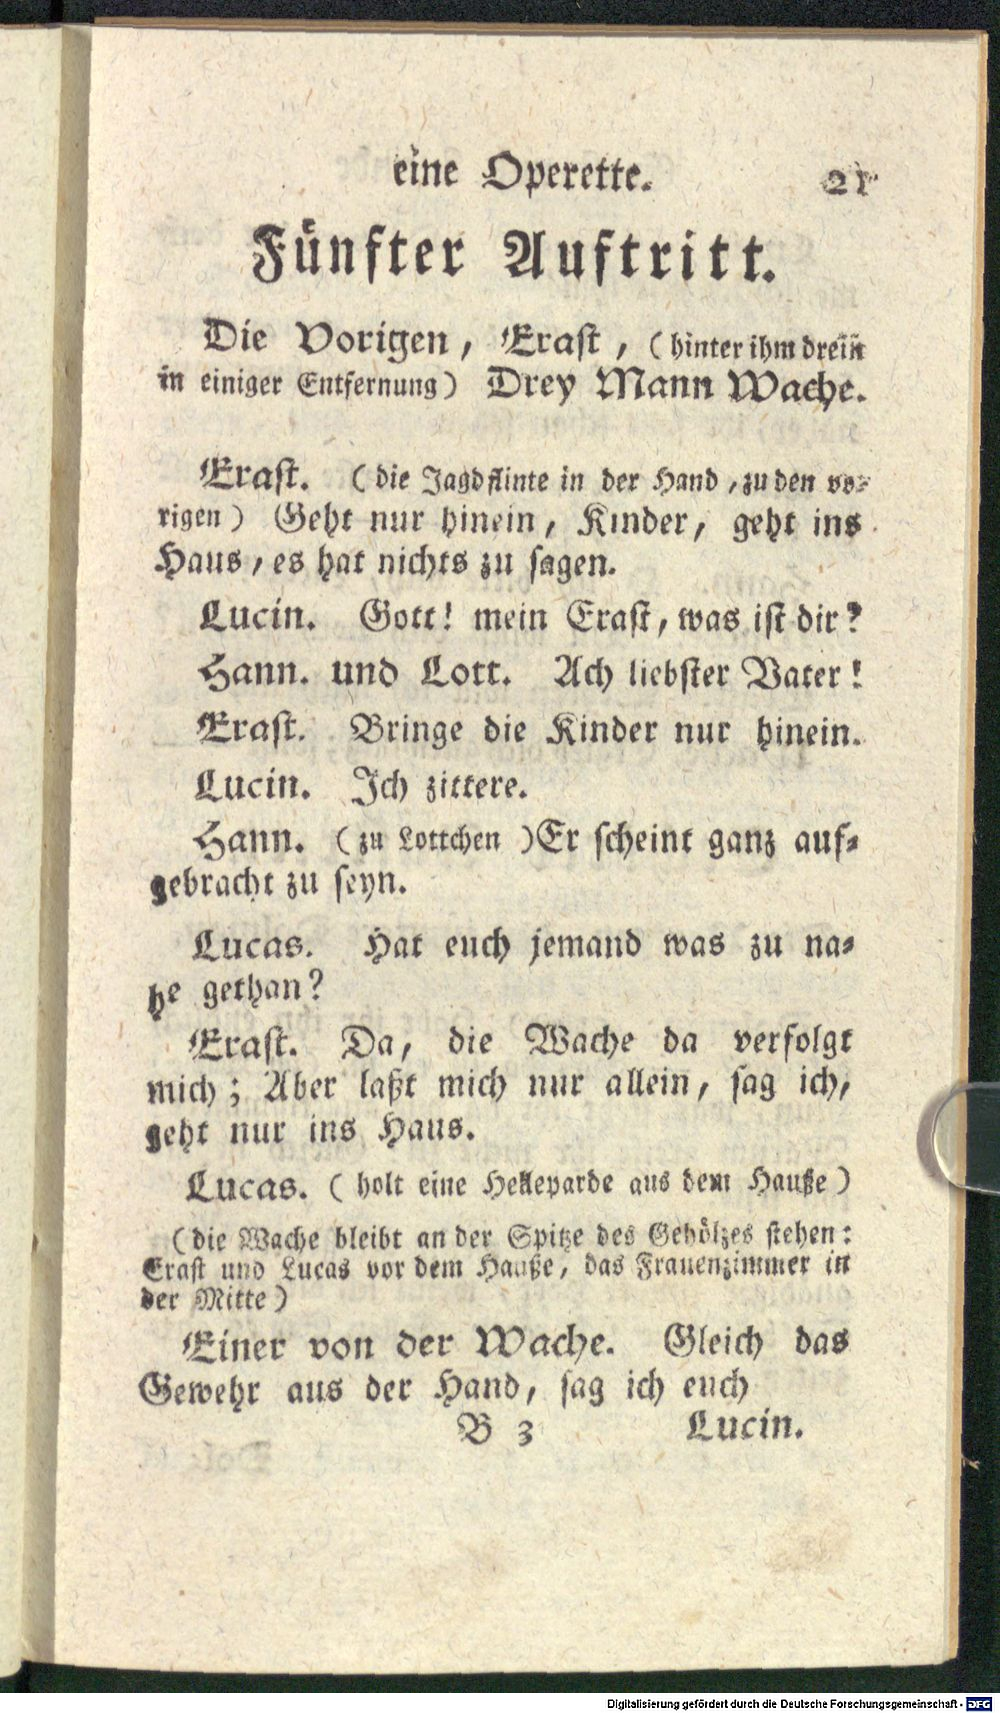 eine Operette. 21
Fünfter Auftritt.
Die Vorigen, Erast, (hinter ihm drein
in einiger Entfernung) Drey Mann Wache.
Erast. (die Jagdflinte in der Hand, zu den vo-
rigen) Geht nur hinein, Kinder, geht ins
Haus, es hat nichts zu sagen.
Lucin. Gott! mein Erast, was ist dir?
Hann. und Lott. Ach liebster Vater!
Erast. Bringe die Kinder nur hinein.
Lucin. Ich zittere.
Hann. (zu Lottchen) Er scheint ganz auf-
gebracht zu seyn.
Lucas. Hat euch jemand was zu na-
he gethan?
Erast. Da, die Wache da verfolgt
mich; Aber laßt mich nur allein, sag ich,
geht nur ins Haus.
Lucas. (holt eine Helleparde aus dem Hauße)
(die Wache bleibt an der Spitze des Gehölzes stehen:
Erast und Lucas vor dem Hauße, das Frauenzimmer in
der Mitte)
Einer von der Wache. Gleich das
Gewehr aus der Hand, sag ich euch
B 3 Lucin.
Digitalisierung gefördert durch die Deutsche Forschungsgemeinschaft - DFG